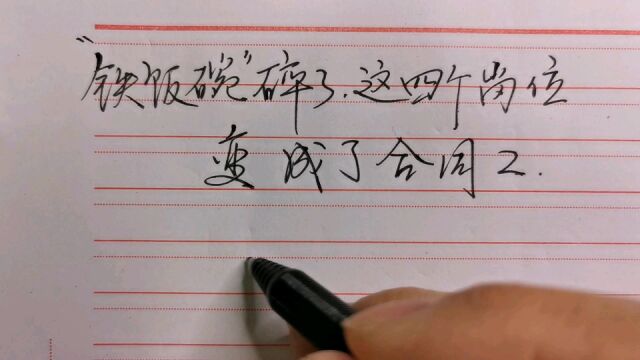 “铁饭碗”碎了.这四个岗位
变成了合同工.